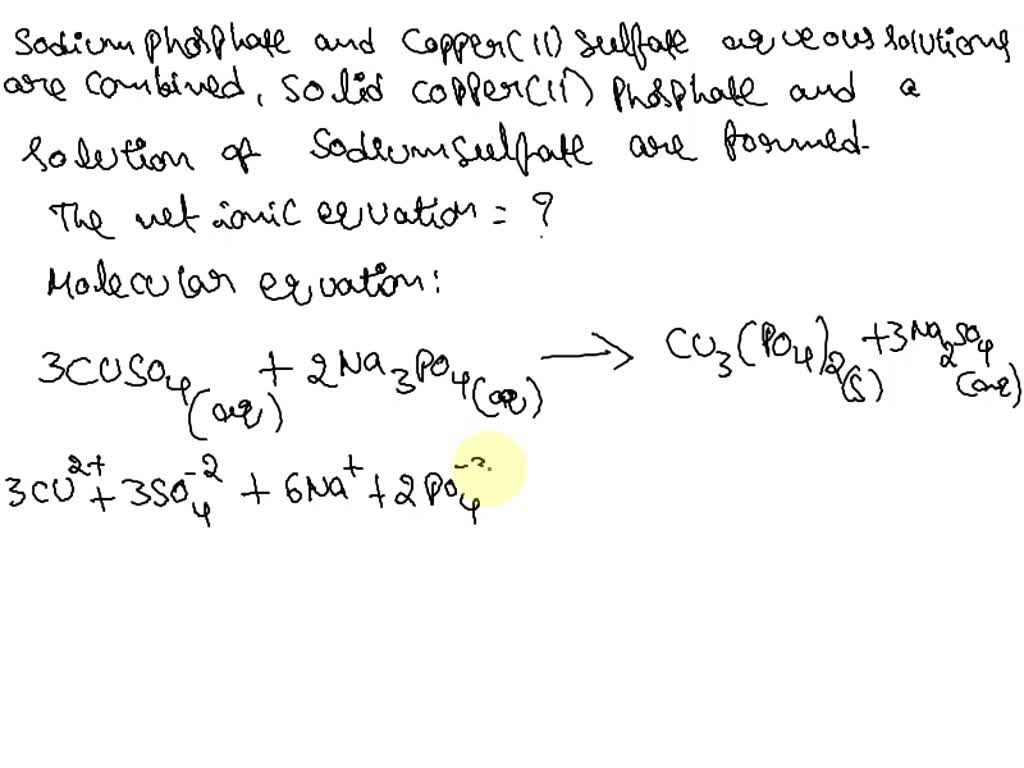 Sodium phosphate and copper(II) sulfate aqueous solutions
are combined, solid copper(II) phosphate and a
solution of sodium sulfate are formed.
The net ionic equation = ?
Molecular equation:
3CuSO₄(aq) + 2Na₃PO₄(aq) → Cu₃(PO₄)₂(s) + 3Na₂SO₄(aq)
3Cu²⁺ + 3SO₄⁻² + 6Na⁺ + 2PO₄⁻³